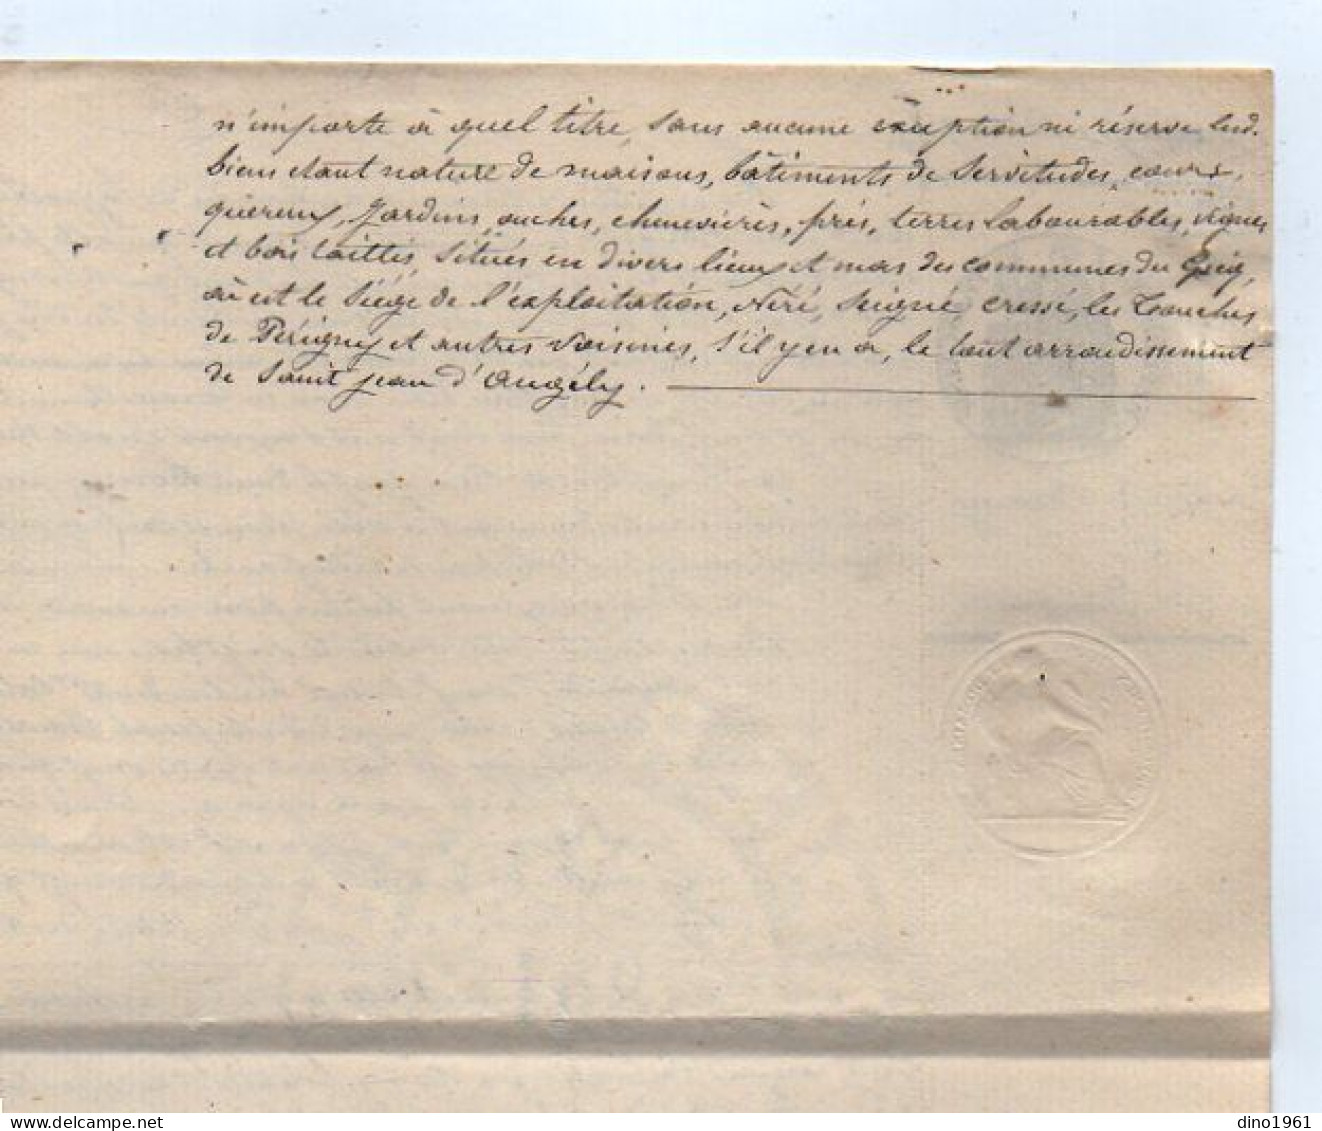 n'importe à quel titre, sans aucune exception ni réserve lesd.
biens étant nature de maisons, bâtiments de servitudes, cours,
quéreux, jardins, ouches, chenevières, prés, terres labourables, vignes
et bois taillis, situés en divers lieux et mas des communes du Gicq,
où est le siège de l'exploitation, Néré, Seigné, Cressé, les Touches
de Périgny et autres voisines, s'il y en a, le tout arrondissement
de Saint Jean d'Angély.
dino1961
www.delcampe.net